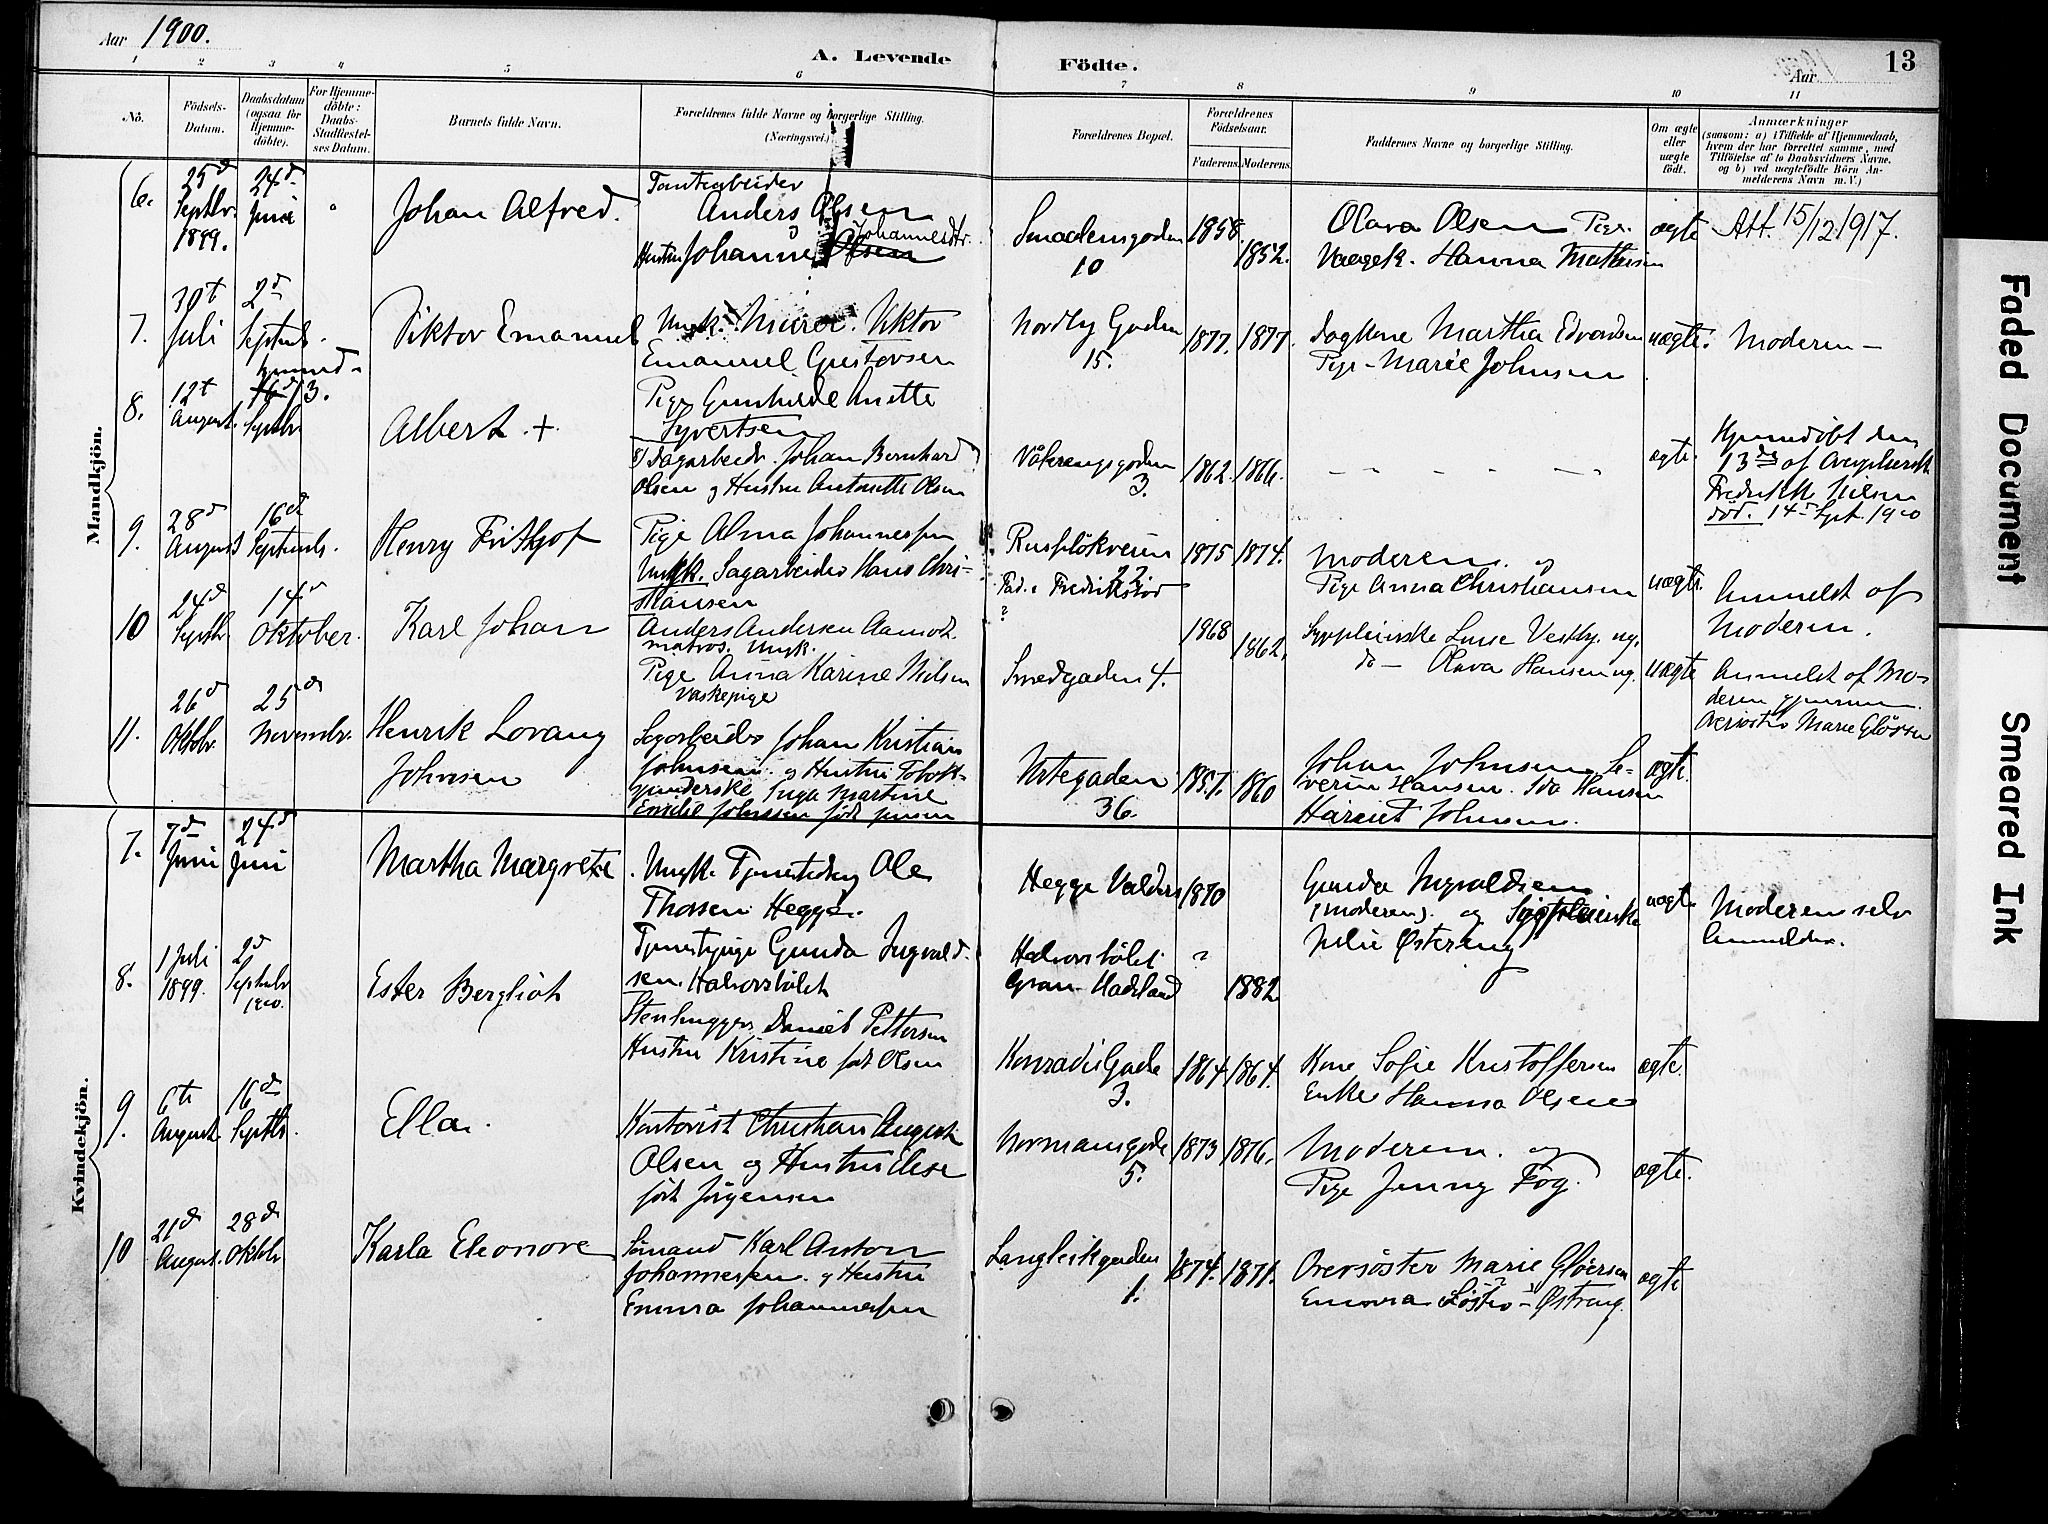 Aar 1900.
A. Levende Födte.
Aar
13
1 2 3 4 5 6 7 8 9 10 11
No.
Födsels-Datum.
Daabsdatum (ogsaa for Hjemme-döbte).
For Hjemme-döbte: Daabs-Stadfæstel-ses Datum.
Barnets fulde Navn.
Forældrenes fulde Navne og borgerlige Stilling. (Næringsvei.)
Forældrenes Bopæl.
Forældrenes Födselsaar.
Faderens. Moderens.
Faddernes Navne og borgerlige Stilling.
Om ægte eller uægte födt.
Anmærkninger
(saasom: a) i Tilfælde af Hjemmedaab, hvem der har forrettet samme, med Tilföielse af to Daabsvidners Navne, og b) ved uægtefödte Börn Anmelderens Navn m.V.)
Mandkjön.
6. 25d Septbr. 1899. 24d Juni
Johan Alfred.
Anders Olsen
Hustru Johanne Johannesdtr. Olsen
10
1858. 1852.
Olava Olsen Pige.
Hanna Mathisen
ægte
Att. 15/12 1917.
7. 30t Juli 2d Septbr.
Viktor Emanuel
Ungk. Murer. Viktor
Emanuel Gustavsen
Pige Gunhilde Anette
Syvertsen
Nordby Gaden
15.
1877. 1877.
Martha Edvardsen
Pige - Marie Johnsen
uægte.
Moderen -
8. 12t August. 13. Septbr
Albert. +
Johan Bernhard
Olsen og Hustru Antonette Olsen
Vålerengsgaden
3.
1862. 1866.
ægte.
Hjemmedöbt den
13de af
Fredrikke Nilsen
död. 14d Sept. 1900
9. 28d August 16d Septembr.
Henry Frithjof
Pige Alma Johannessen
Ungk. Sagarbeider Hans Christiansen
22.
Fad. : Fredrikstad
1875 1874.
Moderen. og
Pige Anna Christiansen
uægte.
Anmeldt af
Moderen.
10 24d Septbr. 14d Oktober.
Karl Johan
Anders Andersen Aamodt.
matros. Ungk.
Pige Anna Karine Nilsen
Vaskepige
?
Smedgaden 4.
1868 1862.
Luise Vestby. ug.
do - Olava Hansen ug.
uægte
Anmeldt af Mo-
deren gjennem
Oversöster Marie Glöersen
11. 26d Oktobr. 25d Novembr.
Henrik Lorang
Johnsen
Sagarbeider Johan Kristian
Johnsen. og Hustru
Inga Martine
Emilie Johnsen födt Jensen
Urtegaden
36.
1857. 1860
Johan Johnsen. Se-
verin Hansen. Ida Hansen
Harriet Johnsen.
ægte.
Kvindekjön.
7. 7d Juni 24d Juni
Martha Margrete
Ungk. Tjenestedreng Ole
Thorsen Hegge.
Tjenestepige Gunda Ingvald-
sen. Halvorsbölet
Hegge Valdres
Halvorsbölet
Gran Hadeland
1870
?
1882
Gunda Ingvaldsen
(moderen). og
Julie Østereng
uægte
Moderen selv
Anmelder.
8. 1 Juli 1899. 2d Septebr 1900.
Ester Bergliot
Stenhugger Daniel Pettersen
Hustru Kristine födt Olsen
Konradis Gade
3.
1864 1864.
Kone Sofie Kristoffersen
Enke Hanna Olsen
ægte.
9. 6te August 16d Septbr.
Ella.
Kontorist Christian August
Olsen og Hustru Elise
födt Jörgensen
Normansgade
5.
1873 1876.
Moderen. og
Pige Jenny Fog.
ægte.
10 21d August. 28d Oktobr
Karla Eleonore
Sömand Karl Anton
Johannessen. og Hustru
Emma Johannessen
Langleikgaden
1.
1874. 1871.
Oversöster Marie Glöersen
Emma Söster Østreng.
ægte
Faded Document
Smeared Ink